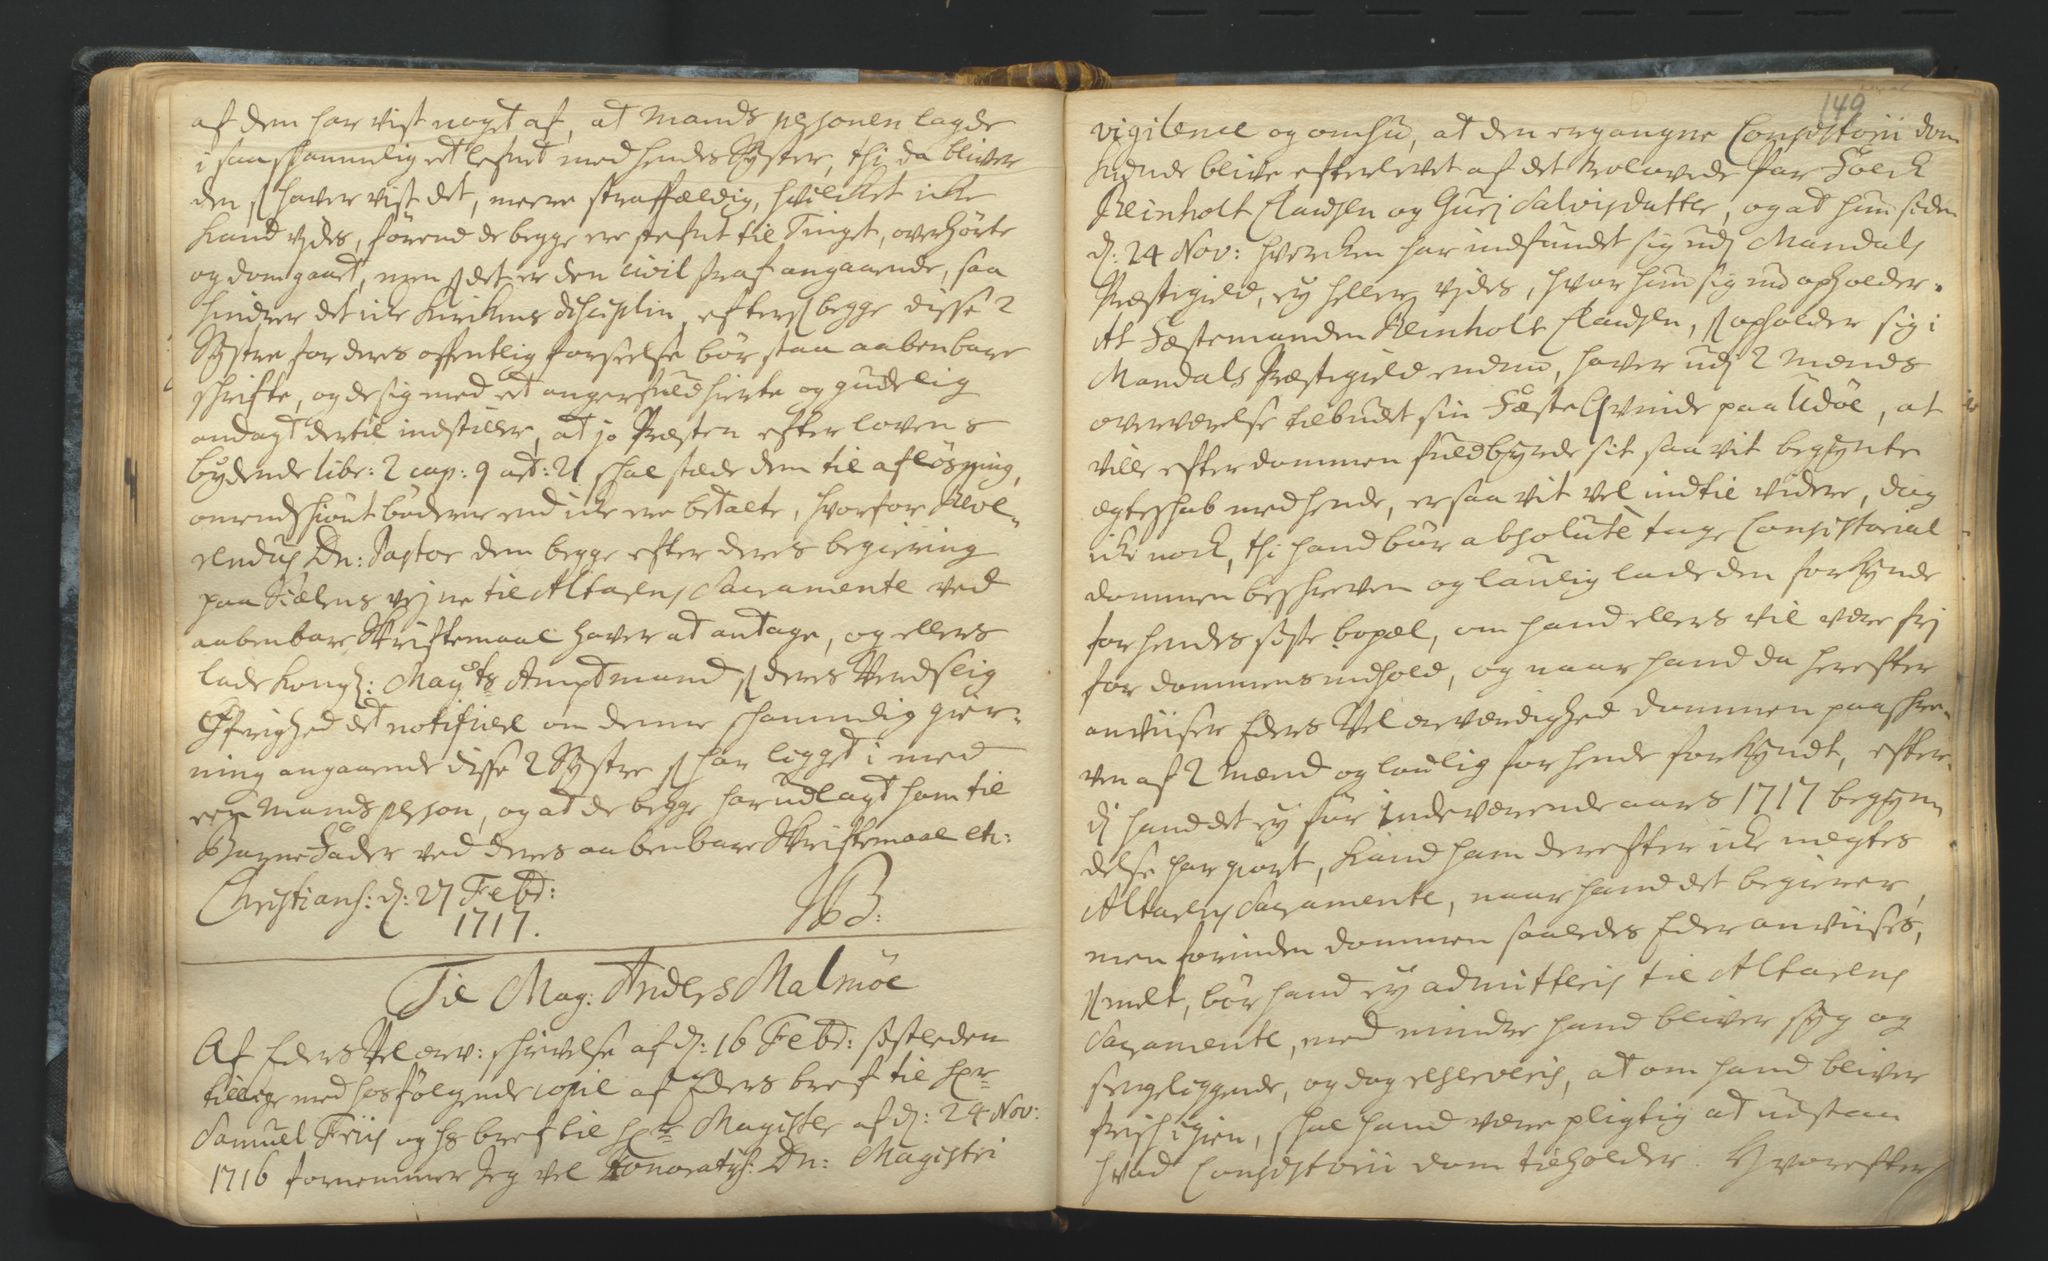 af dem har vist noget af, at Mands personen lagde
i saa skammelig et lefnet med hendes Syster, thi da bliver
den, som haver vist det, meere straffældig, hvilket icke
kand vides, førend de begge ere stefnt til Tinget, overhørte
og dom gaaet, men som det er den civil straf angaaende, saa
hindrer det icke Kirkens disciplin, eftersom begge disse 2
Systre for deres offentlig forseelse bør staa aabenbare
skrifte, og de sig med et angerfuld hierte og gudelig
andagt dertil indstiller, at jo Præsten efter lovens
bydende libr: 2 cap: 9 art: 21 skal stæde dem til afløsning,
omendskiønt bøderne end icke ere betalte, hvorfor Reve-
rendus Dn: Pastor dem begge efter deres begiering
paa Siælens vejne til Altarens Sacramente ved
aabenbare Skriftemaal haver at antage, og ellers
lade Kongl: Mayts Amptmand som deres Verdslig
Øfrighed det notificere om denne skammelig gier-
ning angaaende disse 2 Systre som har ligget i med
een Mands person, og at de begge har udlagt ham til
Barne Fader ved deres aabenbare Skriftemaal etc:
Christians: d: 27 Febr:
1717.
Til Mag: Anders Malmöe
Af Eders Vel ærv: skrivelse af d: 16 Febr: sistleden
tillige med hosfølgende copie af Eders bref til Her
Samuel Friis og hs bref til Hr Magister af d: 24 Nov:
1716 fornemmer Jeg vel Honoratiss: Dn: Magistri
149
vigilence og omhu, at den ergangne Consistorii dom
kunde blive efterlevet af det trolovede par Folck
Reinholt Claussen og Guri Salvisdatter, og at hun siden
d: 24 Nov: hvercken har indfundet sig udi Mandals
Præstegield, ey heller vides, hvor hun sig nu opholder.
At Fæstemanden Reinholt Claussen, som opholder sig i
Mandals Præstegield endnu, haver udi 2 Mænds
overværelse tilbudet sin Fæste Qvinde paa Udöe, at
ville efter dommen fuldbyrde sit saa vit begynte
egteskab med hende, er saa vit vel indtil videre, dog
icke nock, thi hand bør absolute tage Consistorial
dommen beskreven og lavlig lade den forkynde
for hendes siste bopæl, om hand ellers vil være fri
for dommens indhold, og naar hand da herefter
anviiser Eders Vel ærværdighed dommen paaskre-
ven af 2 Mænd og lovlig for hende forkyndt, efter-
di hand det ey før indeværende aars 1717 begyn-
delse har giort, kand ham derefter icke negtes
Altarens Sacramente, naar hand det begierer,
men forinden dommen saaledes Eder anviises,
som meldt, bør hand ey admitteris til Altarens
Sacramente, med mindre hand bliver syg og
sengeliggende, og dog reserveris, at om hand bliver
frisk igien, skal hand være pligtig at udstaa
hvad Consistorii dom tilholder. Hvorefter